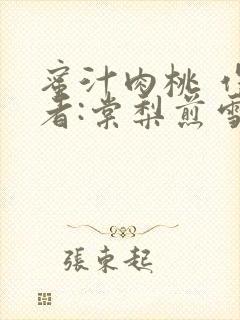 蜜汁肉桃 作
者:棠梨煎雪
張東起